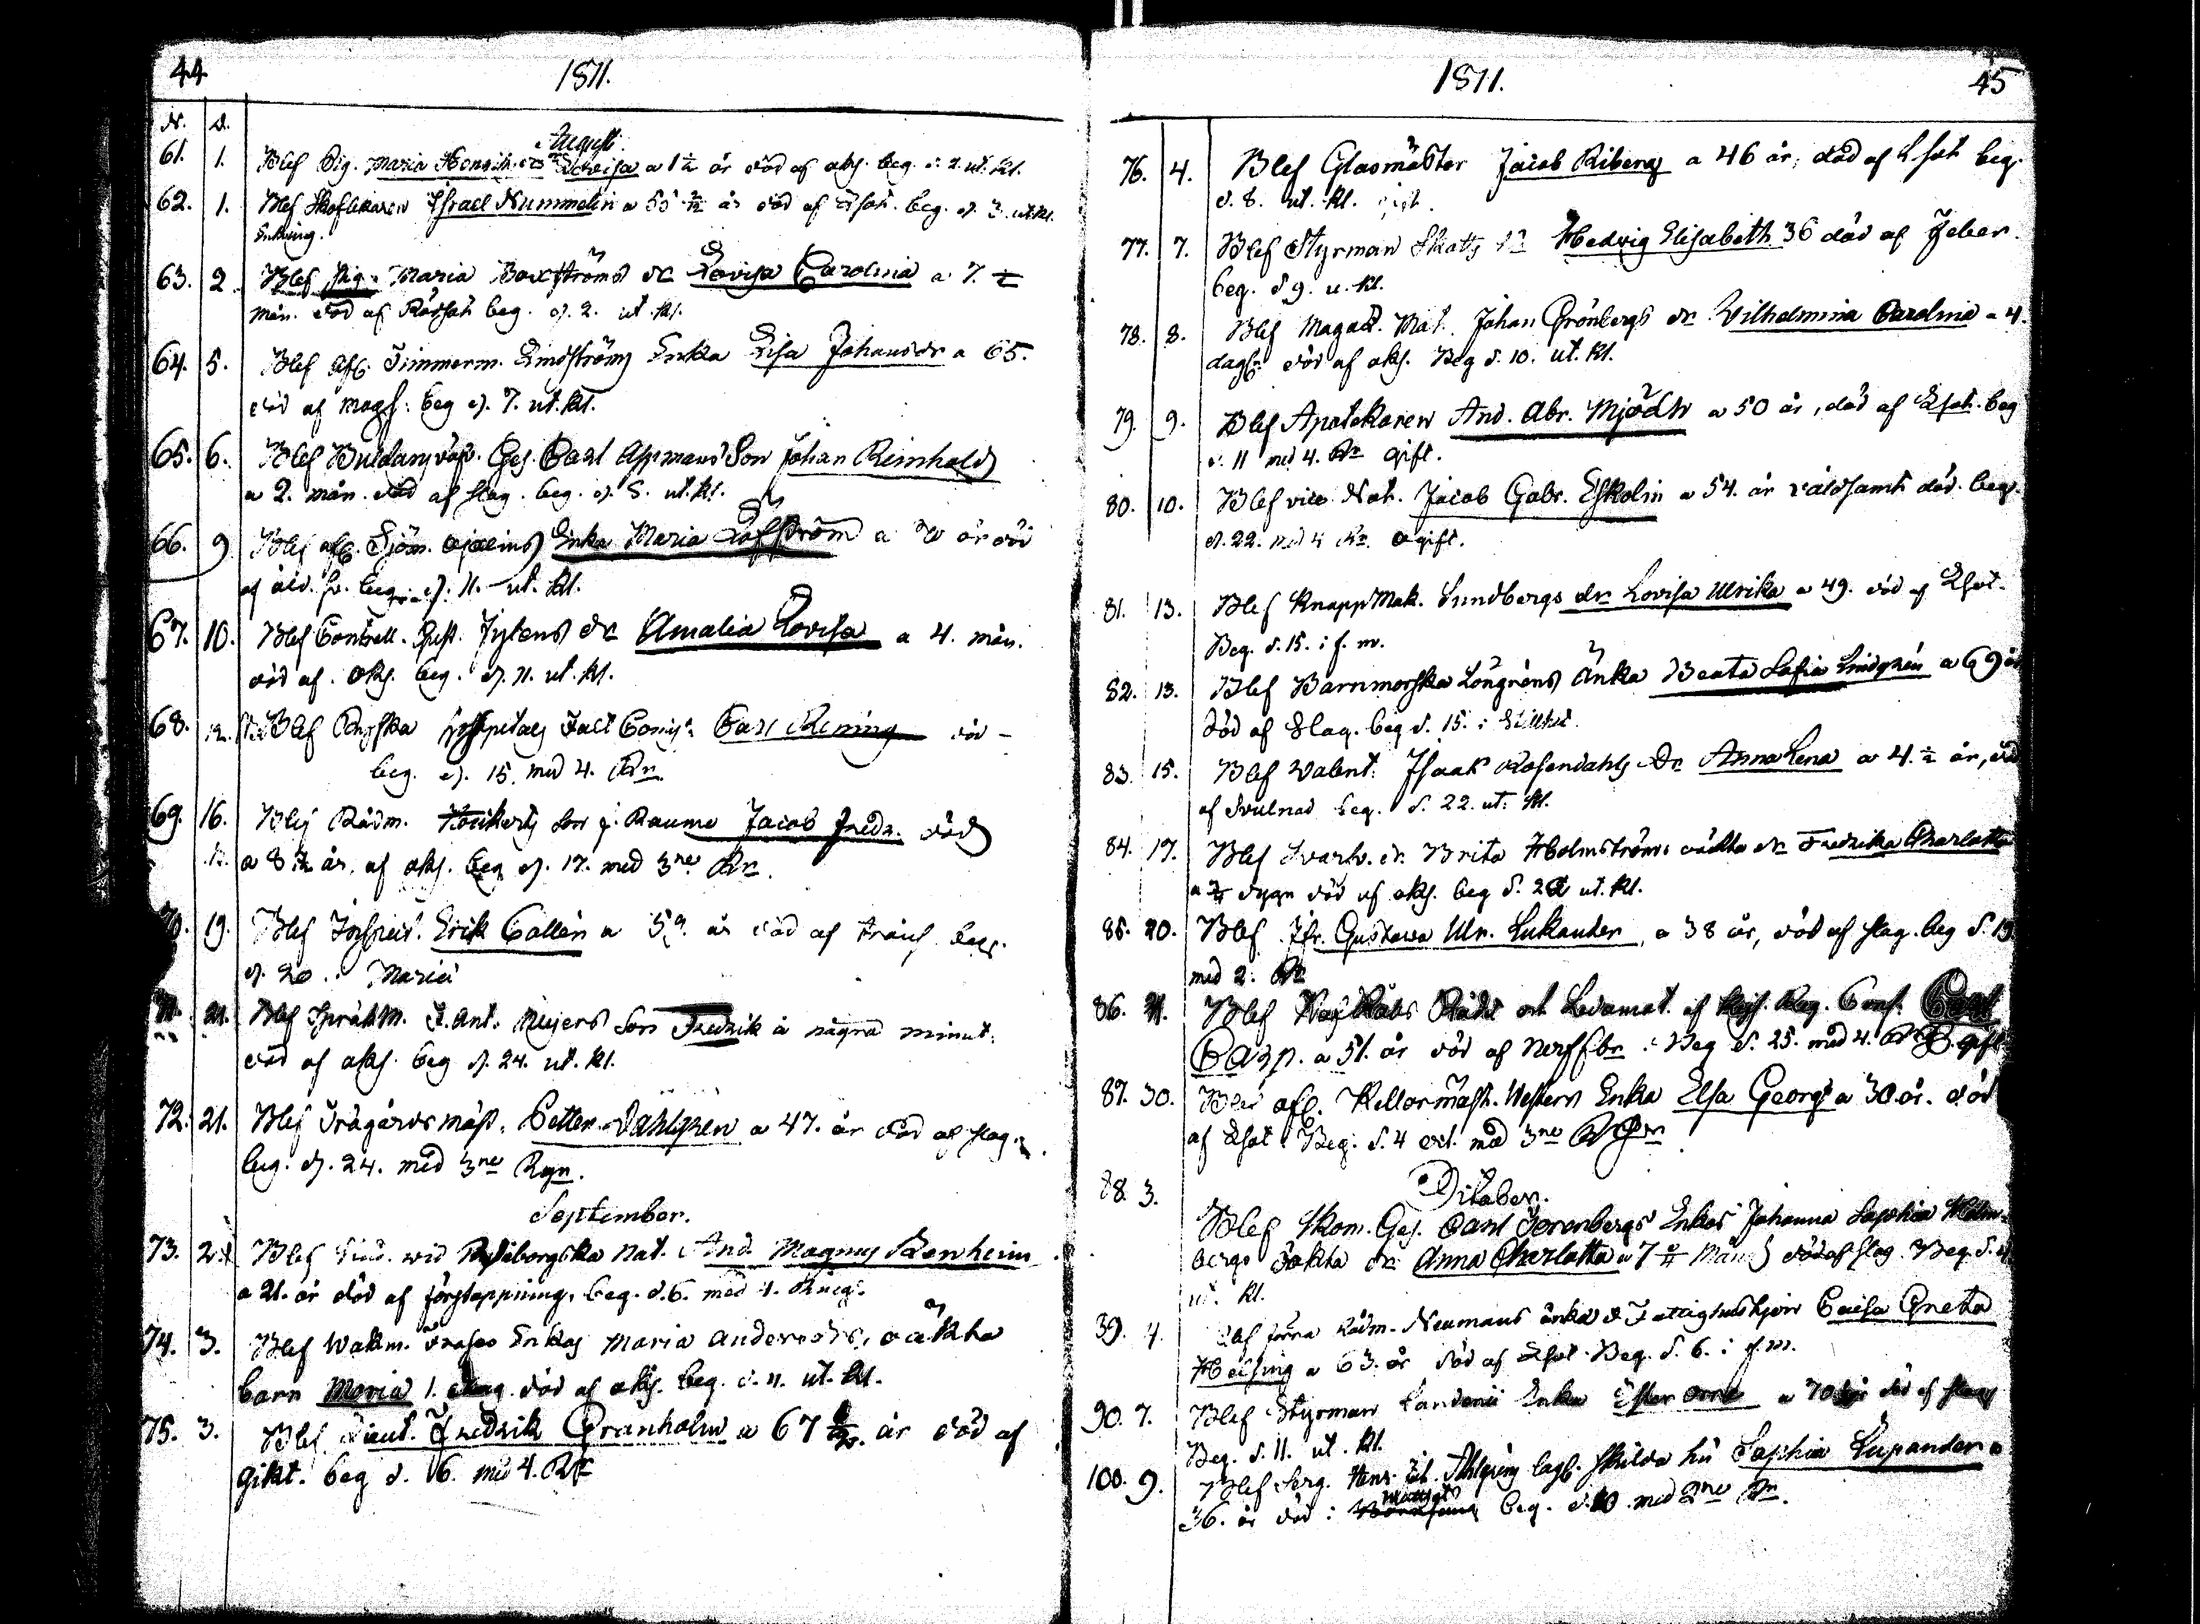 44 1811.
N. D.
August.
61. 1. Blef Pig. Maria Henrik. dr Lovisa a 1 1/2 år död af oks. beg. d. 2. ut. kl.
62. 1. Blef Skoflikaren Israel Nummelin a 55 år död af Lsot. beg. d. 3. ut. kl.
Enkling.
63. 2. Blef Pig. Maria Backströms dr Lovisa Carolina a 7. 1/2
mån. död af Rödsot beg. d. 2. ut. kl.
64. 5. Blef Afl. Timmerm. Lindströms Enka Lisa Johansdr a 65.
död af Mags: beg d. 7. ut. kl.
65. 6. Blef Ges. Carl Appmans Son Johan Reinhold
a 2. mån. död af slag. beg. d. 8. ut. kl.
66. 9. Blef afl. Sjöm. Enka Maria Löfström a 70 år död
af åld. beg. d. 11. ut. kl.
67. 10. Blef Contrll. Gust. dr Amalia Lovisa a 4. mån.
död af. Oks. beg. d. 11. ut. kl.
68. 12. Blef Ryska Hospitals Carl Rening död -
beg. d. 15. med 4. Rn
69. 16. Blef Rådm. Son f. Raumo Jacob Fredr. död
a 8 år, af oks. beg d. 17. med 3ne Rn.
70. 19. Blef Inspect. Erik Collén a 59. år död af beg.
d. 20. i Mariæ
71. 21. Blef SpråkM. J. Ant. Meijers Son Fredrik à några minut.
död af oks. beg d. 24. ut. kl.
72. 21. Blef Trägårdsmäst. Petter Dahlgren a 47. år död af slag.
beg. d. 24. med 3ne Rgn.
September.
73. 2. Blef Stud. wid Nat. And. Magnus Renheim
a 21. år död af förstoppning. beg. d. 6. med 4. Ring.
74. 3. Blef Wakm. Enkas Maria Andersdr, oäkta
barn Maria 1. död af oks. beg. d. 11. ut. kl.
75. 3. Blef Lieut. Fredrik Granholm a 67 år död af
Gikt. beg d. 6. med 4. Rn
1811. 45
76. 4. Blef Glasmäster Jacob Riberg a 46 år, död af Lsot beg.
d. 8. ut. kl. gift.
77. 7. Blef Styrman Skatts dr Hedvig Elisabeth 36 död af Feber.
beg. d 9. u. kl.
78. 8. Blef Magaz. Mat. Johan Grönbergs dr Wilhelmina Carolina a 4.
dagr död af oks. Beg d. 10. ut. kl.
79. 9. Blef Apotekaren And. Abr. Mjödh a 50 år, död af Lsot. beg
d. 11 med 4. Rn gift.
80. 10. Blef vice Not. Jacob Gabr. Eskolin a 54. år våldsamt död. beg.
d. 22. med 4 Rn. Ogift.
81. 13. Blef KnappMak. Sundbergs dr Lovisa Ulrika a 49. död af Lsot.
Beg. d. 15. i f. m.
82. 13. Blef Barnmorska Löngréns Änka Beata Sofia Lindgrén a 69 år
död af Slag. beg d. 15. i Stillhet.
83. 15. Blef Valent. Isaak Rosendahls Dr Anna Lena a 4. 1/2 år, död
af Svulnad beg. d. 22. ut. kl.
84. 17. Blef Svarfv. dr Brita Holmströms oäkta dr Fredrika Charlotta
a dygn död af oks. beg d. 22 ut. kl.
85. 20. Blef Jfr. Gustava Ulr. Lukander, a 38 år, död af slag. beg d. 19
med 2. Rn
86. 21. Blef Råds och Ledamot. af Reg. Conf. Carl
Carp. a 51. år död af Nerffbr: Beg d. 25. med 4. gift
87. 30. Blef afl. Källarmäst. Westers Enka Elsa Georgs a 30. år. död
af Lsot: Beg. d. 4 oct. med 3ne
October.
88. 3. Blef Skom. Ges. Carl Enkas Johanna Sophia Holm-
bergs oäkta dr Anna Charlotta a 7 Mån. död af Slag. Beg. d. 4
ut. kl.
89. 4. Blef förra Rådm. Neumans änka & Cajsa Greta
Helsing a 63. år död af Lsot. Beg. d. 6. i f. m.
90. 7. Blef Styrman Enka Ester Orre a 70 år död af slag
Beg. d. 11. ut. kl.
100. 9. Blef Serg. Henr. Joh. lagl. skilda hu Sophia Lupander a
36. år död i beg. d. 10 med 2ne Rn.